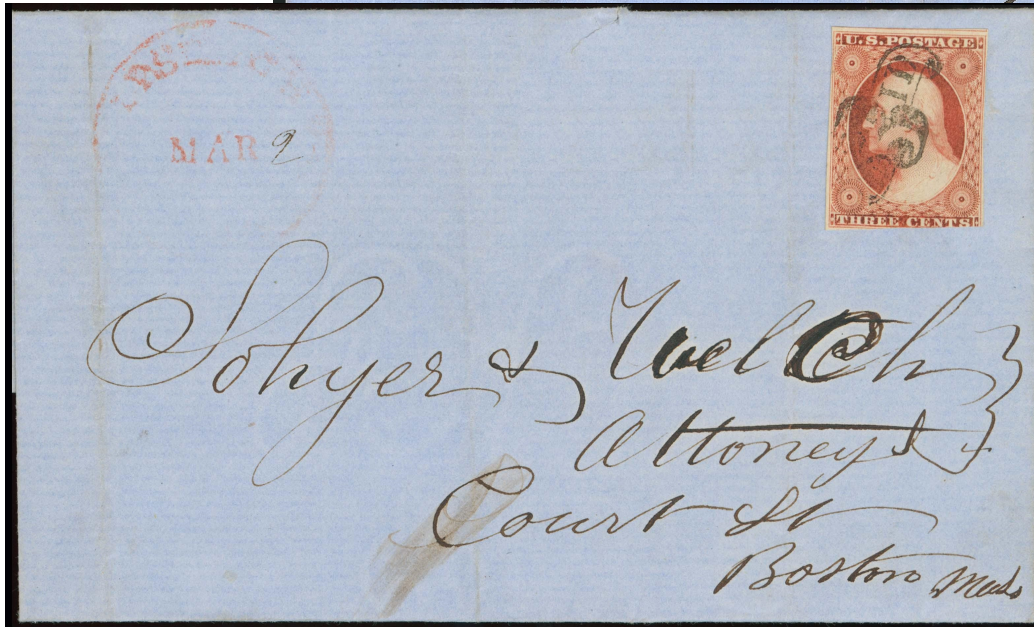 MAR 9
U.S. POSTAGE
PAID
THREE CENTS
Sohyer & Welch
Attorneys
Court St
Boston Mass